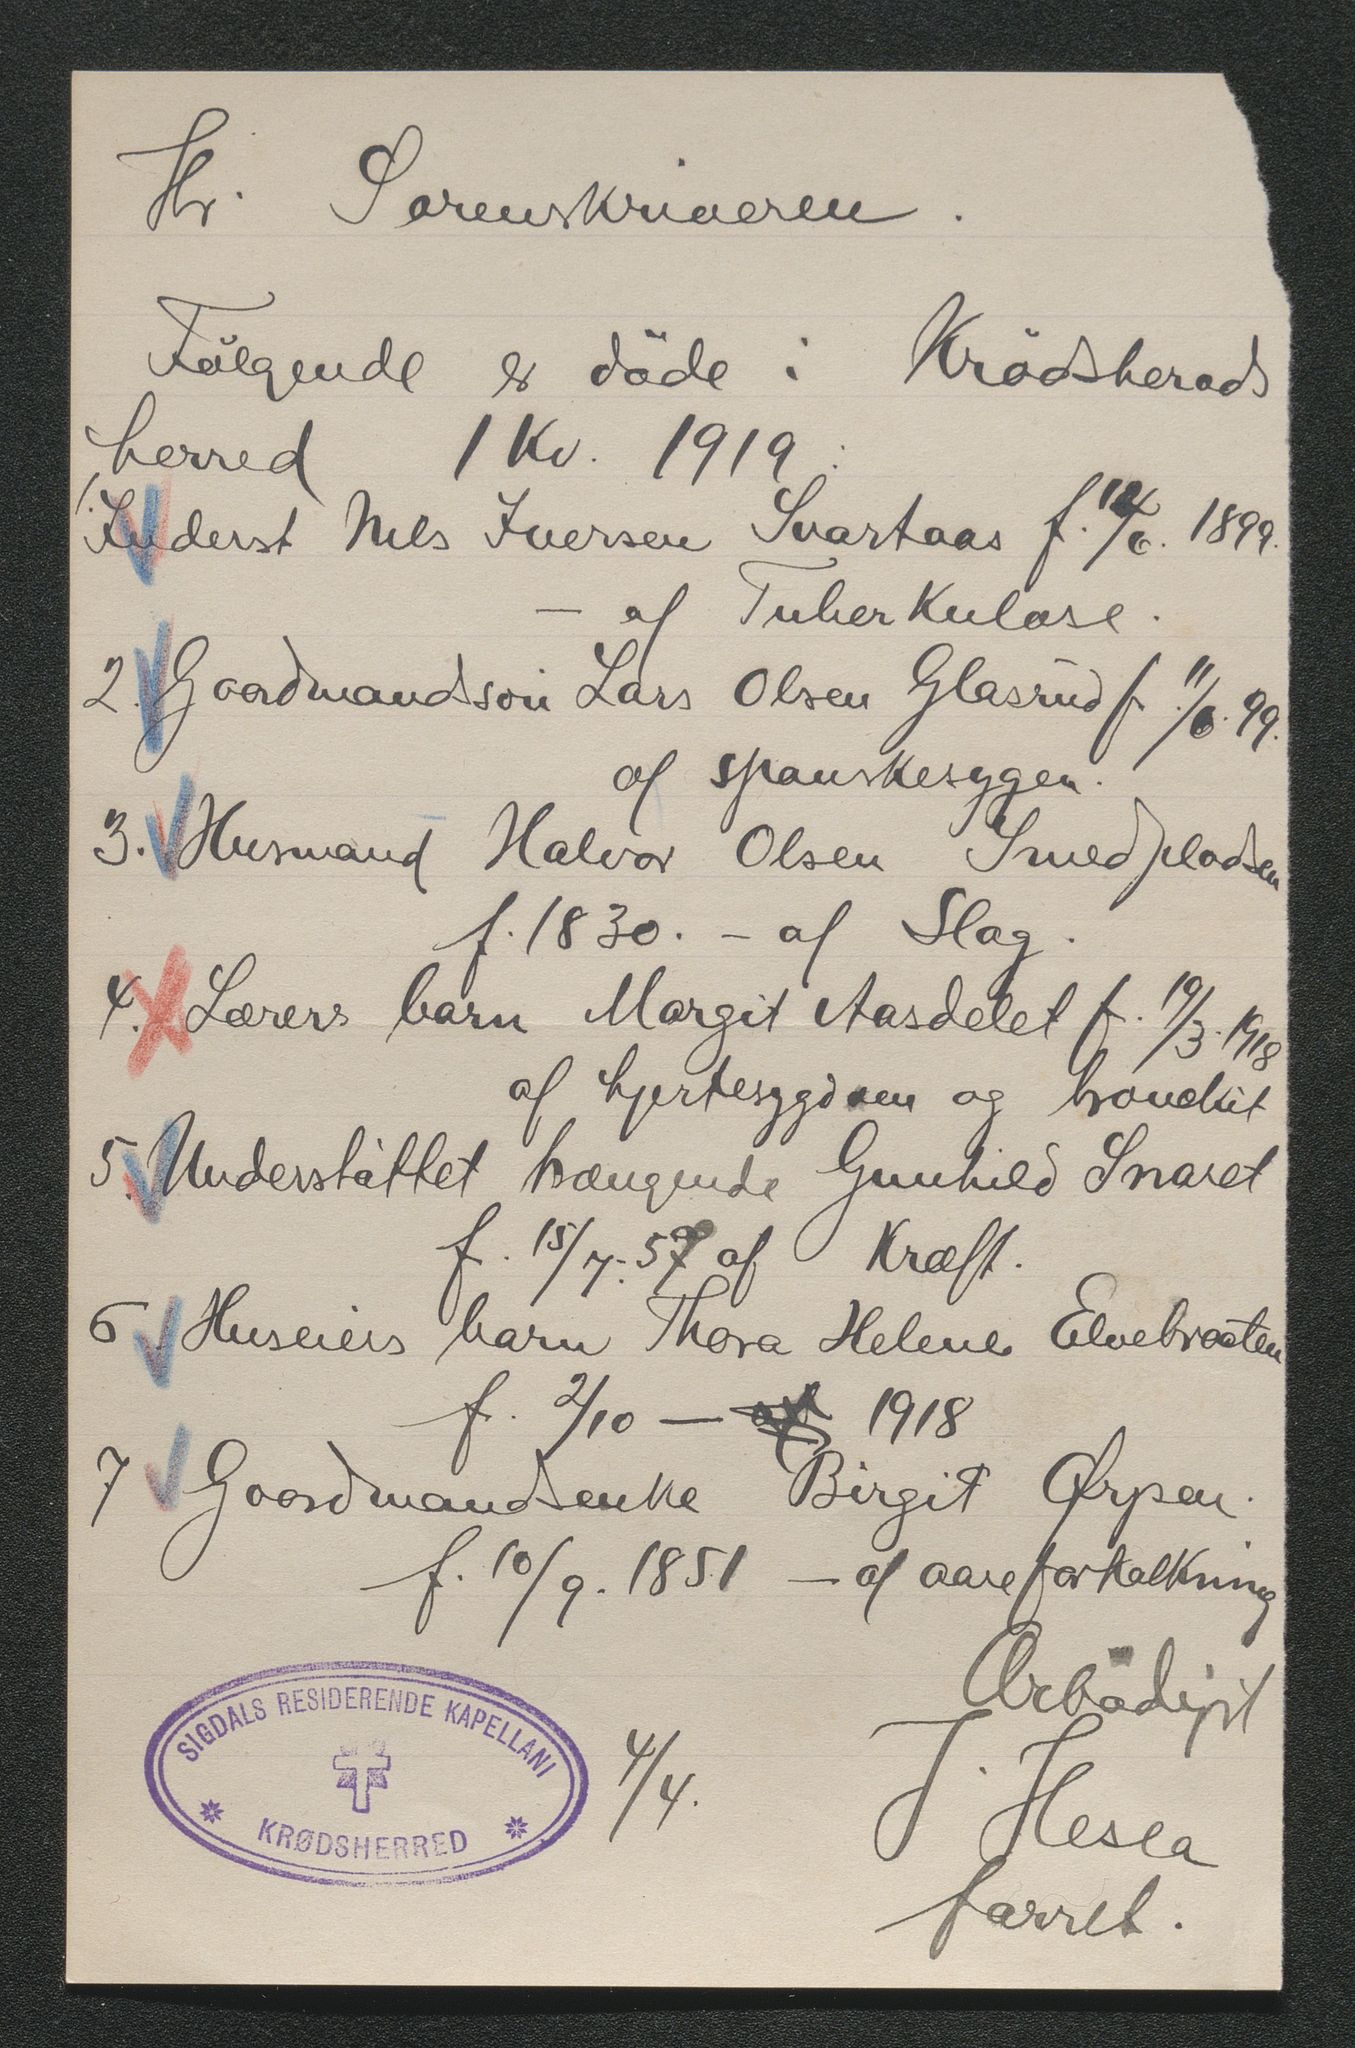 Hr. Sorenskriveren.
Følgende er døde i Krødsherads
herred 1 Kv. 1919:
1. Inderst Nils Iversen Svartaas f. /6. 1899.
— af Tuberkulose.
2. Gaardmandssøn Lars Olsen Glasrud f. 11/6. 99.
af spanskesygen.
3. Husmand Halvor Olsen Smedpladsen
f. 1830. — af Slag.
4. Lærers barn Margit Aasdelet f. 19/3. 1918
af hjertesygdom og bronchit
5. Understøttet trængende Gunhild Snaret
f. 15/7. 57 af Kræft.
6 Huseiers barn Thora Helene Elvebraaten
f. 2/10 — 1918
7 Gaardmandsenke Birgit Ørpen.
f. 10/9. 1851 — af aareforkalkning
Ærbødigst
4/4. J. Hesla
SIGDALS RESIDERENDE KAPELLANI
KRØDSHERRED